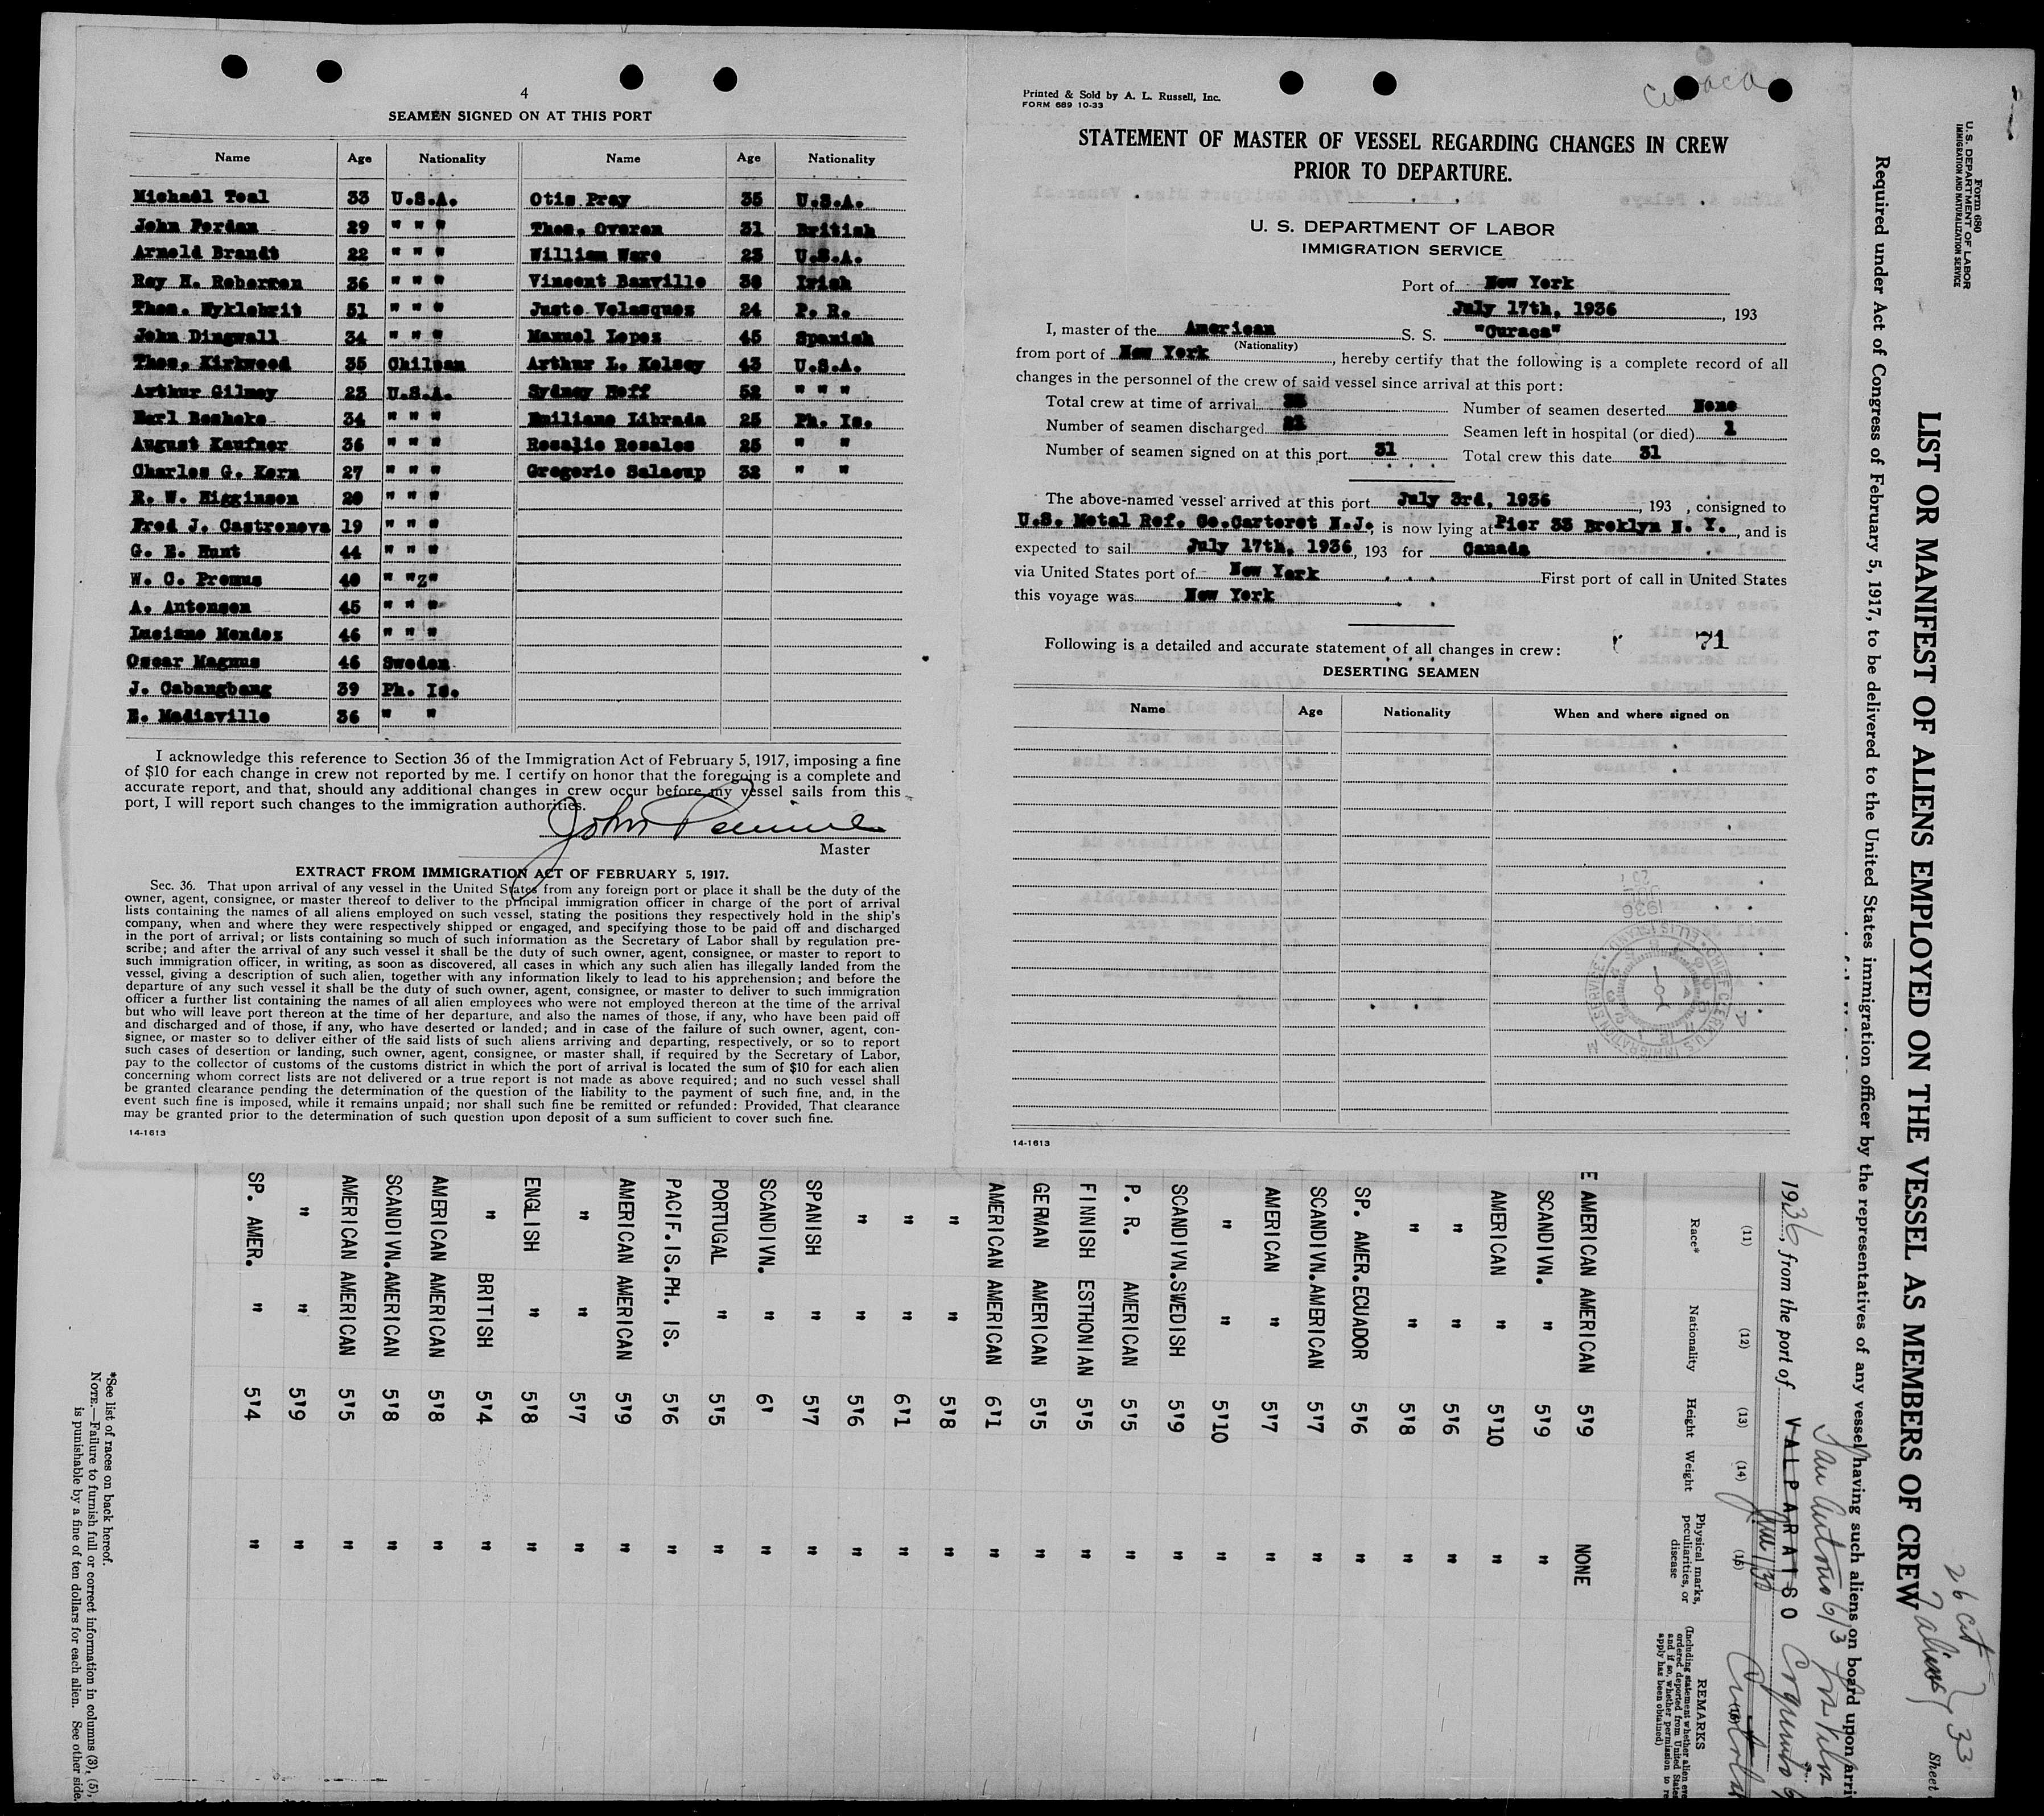 4
SEAMEN SIGNED ON AT THIS PORT
Name Age Nationality Name Age Nationality
Michael Teal 33 U.S.A. Otis Pray 35 U.S.A.
John Fordan 29 " " " Thos. Overen 31 British
Arnold Brandt 22 " " " William Ware 23 U.S.A.
Roy H. Roberson 36 " " " Vincent Banville 38 Irish
Thos. Myklebrit 51 " " " Juste Velasquez 24 P. R.
John Dingwall 34 " " " Manuel Lopez 45 Spanish
Thos. Kirkwood 35 Chilean Arthur L. Kelsey 43 U.S.A.
Arthur Gilmey 23 U.S.A. Sydney Hoff 52 " " "
Earl Besheke 34 " " " Emiliano Librada 25 Ph. Is.
August Kaufner 36 " " " Rosalie Rosales 25 " "
Charles G. Kern 27 " " " Gregorio Salacup 32 " "
R. W. Higginson 20 " " "
Fred J. Castronova 19 " " "
G. E. Hunt 44 " " "
W. C. Promus 40 " "z"
A. Antonsen 45 " " "
Luciano Mendez 46 " " "
Oscar Magnus 46 Sweden
J. Cabangbang 39 Ph. Is.
E. Madiaville 36 " "
I acknowledge this reference to Section 36 of the Immigration Act of February 5, 1917, imposing a fine
of $10 for each change in crew not reported by me. I certify on honor that the foregoing is a complete and
accurate report, and that, should any additional changes in crew occur before my vessel sails from this
port, I will report such changes to the immigration authorities.
John
Master
EXTRACT FROM IMMIGRATION ACT OF FEBRUARY 5, 1917.
Sec. 36. That upon arrival of any vessel in the United States from any foreign port or place it shall be the duty of the
owner, agent, consignee, or master thereof to deliver to the principal immigration officer in charge of the port of arrival
lists containing the names of all aliens employed on such vessel, stating the positions they respectively hold in the ship's
company, when and where they were respectively shipped or engaged, and specifying those to be paid off and discharged
in the port of arrival; or lists containing so much of such information as the Secretary of Labor shall by regulation pre-
scribe; and after the arrival of any such vessel it shall be the duty of such owner, agent, consignee, or master to report to
such immigration officer, in writing, as soon as discovered, all cases in which any such alien has illegally landed from the
vessel, giving a description of such alien, together with any information likely to lead to his apprehension; and before the
departure of any such vessel it shall be the duty of such owner, agent, consignee, or master to deliver to such immigration
officer a further list containing the names of all alien employees who were not employed thereon at the time of the arrival
but who will leave port thereon at the time of her departure, and also the names of those, if any, who have been paid off
and discharged and of those, if any, who have deserted or landed; and in case of the failure of such owner, agent, con-
signee, or master so to deliver either of the said lists of such aliens arriving and departing, respectively, or so to report
such cases of desertion or landing, such owner, agent, consignee, or master shall, if required by the Secretary of Labor,
pay to the collector of customs of the customs district in which the port of arrival is located the sum of $10 for each alien
concerning whom correct lists are not delivered or a true report is not made as above required; and no such vessel shall
be granted clearance pending the determination of the question of the liability to the payment of such fine, and, in the
event such fine is imposed, while it remains unpaid; nor shall such fine be remitted or refunded: Provided, That clearance
may be granted prior to the determination of such question upon deposit of a sum sufficient to cover such fine.
14-1613
Printed & Sold by A. L. Russell, Inc.
FORM 689 10-33
Curaca
STATEMENT OF MASTER OF VESSEL REGARDING CHANGES IN CREW
PRIOR TO DEPARTURE.
U. S. DEPARTMENT OF LABOR
IMMIGRATION SERVICE
Port of New York
July 17th, 1936, 193
I, master of the American S. S. "Curaca"
(Nationality)
from port of New York, hereby certify that the following is a complete record of all
changes in the personnel of the crew of said vessel since arrival at this port:
Total crew at time of arrival Number of seamen deserted None
Number of seamen discharged Seamen left in hospital (or died) 1
Number of seamen signed on at this port 31 Total crew this date 31
The above-named vessel arrived at this port July 3rd, 1936, 193 , consigned to
U.S. Metal Ref. Co. Carteret N.J, is now lying at Pier 33 Broklyn N. Y., and is
expected to sail July 17th, 1936, 193 for Canada
via United States port of New York First port of call in United States
this voyage was New York
Following is a detailed and accurate statement of all changes in crew: 71
DESERTING SEAMEN
Name Age Nationality When and where signed on
14-1613
Form 680
U. S. DEPARTMENT OF LABOR
IMMIGRATION AND NATURALIZATION SERVICE
LIST OR MANIFEST OF ALIENS EMPLOYED ON THE VESSEL AS MEMBERS OF CREW
26 cit
7 aliens 33
Sheet
Required under Act of Congress of February 5, 1917, to be delivered to the United States immigration officer by the representatives of any vessel having such aliens on board upon arri
San Antonio 6/3
1936, from the port of VALPARAISO Coquimbo
(11) (12) (13) (14) (15)
Race* Nationality Height Weight Physical marks, peculiarities, or disease REMARKS
(Including statement whether alien ever ordered deported from United States and if so, whether permission to re apply has been obtained)
E AMERICAN AMERICAN 5'9 NONE
SCANDIVN. " 5'9 "
AMERICAN " 5'10 "
" " 5'6 "
" " 5'8 "
SP. AMER. ECUADOR 5'6 "
SCANDIVN. AMERICAN 5'7 "
AMERICAN " 5'7 "
" " 5'10 "
SCANDIVN. SWEDISH 5'9 "
P. R. AMERICAN 5'5 "
FINNISH ESTHONIAN 5'5 "
GERMAN AMERICAN 5'5 "
AMERICAN AMERICAN 6'1 "
" " 5'8 "
" " 6'1 "
" " 5'6 "
SPANISH " 5'7 "
SCANDIVN. " 6' "
PORTUGAL " 5'5 "
PACIF.IS. PH. IS. 5'6 "
AMERICAN AMERICAN 5'9 "
" " 5'7 "
ENGLISH " 5'8 "
" BRITISH 5'4 "
AMERICAN AMERICAN 5'8 "
SCANDIVN. AMERICAN 5'8 "
AMERICAN AMERICAN 5'5 "
" " 5'9 "
SP. AMER. " 5'4 "
*See list of races on back hereof.
NOTE.—Failure to furnish full or correct information in columns (3), (5),
is punishable by a fine of ten dollars for each alien. See other side.